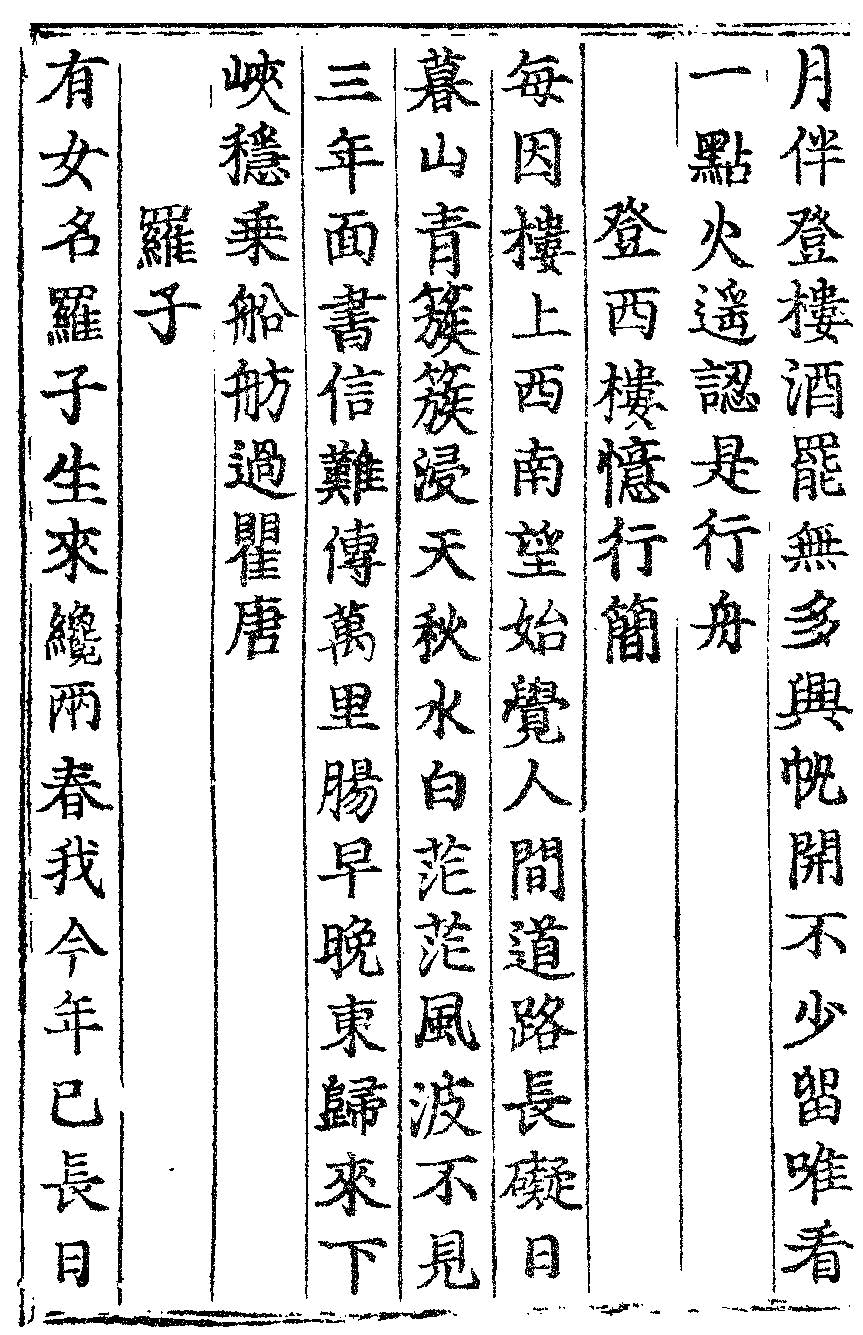 月伴登樓酒罷無多興帆開不少留唯看
一點火遥認是行舟
登西樓憶行簡
每因樓上西南望始覺人間道路長礙日
暮山青簇簇浸天秋水白茫茫風波不見
三年面書信難傳萬里腸早晚東歸來下
峽穩乗船舫過瞿唐
羅子
有女名羅子生來纔兩春我今年已長日